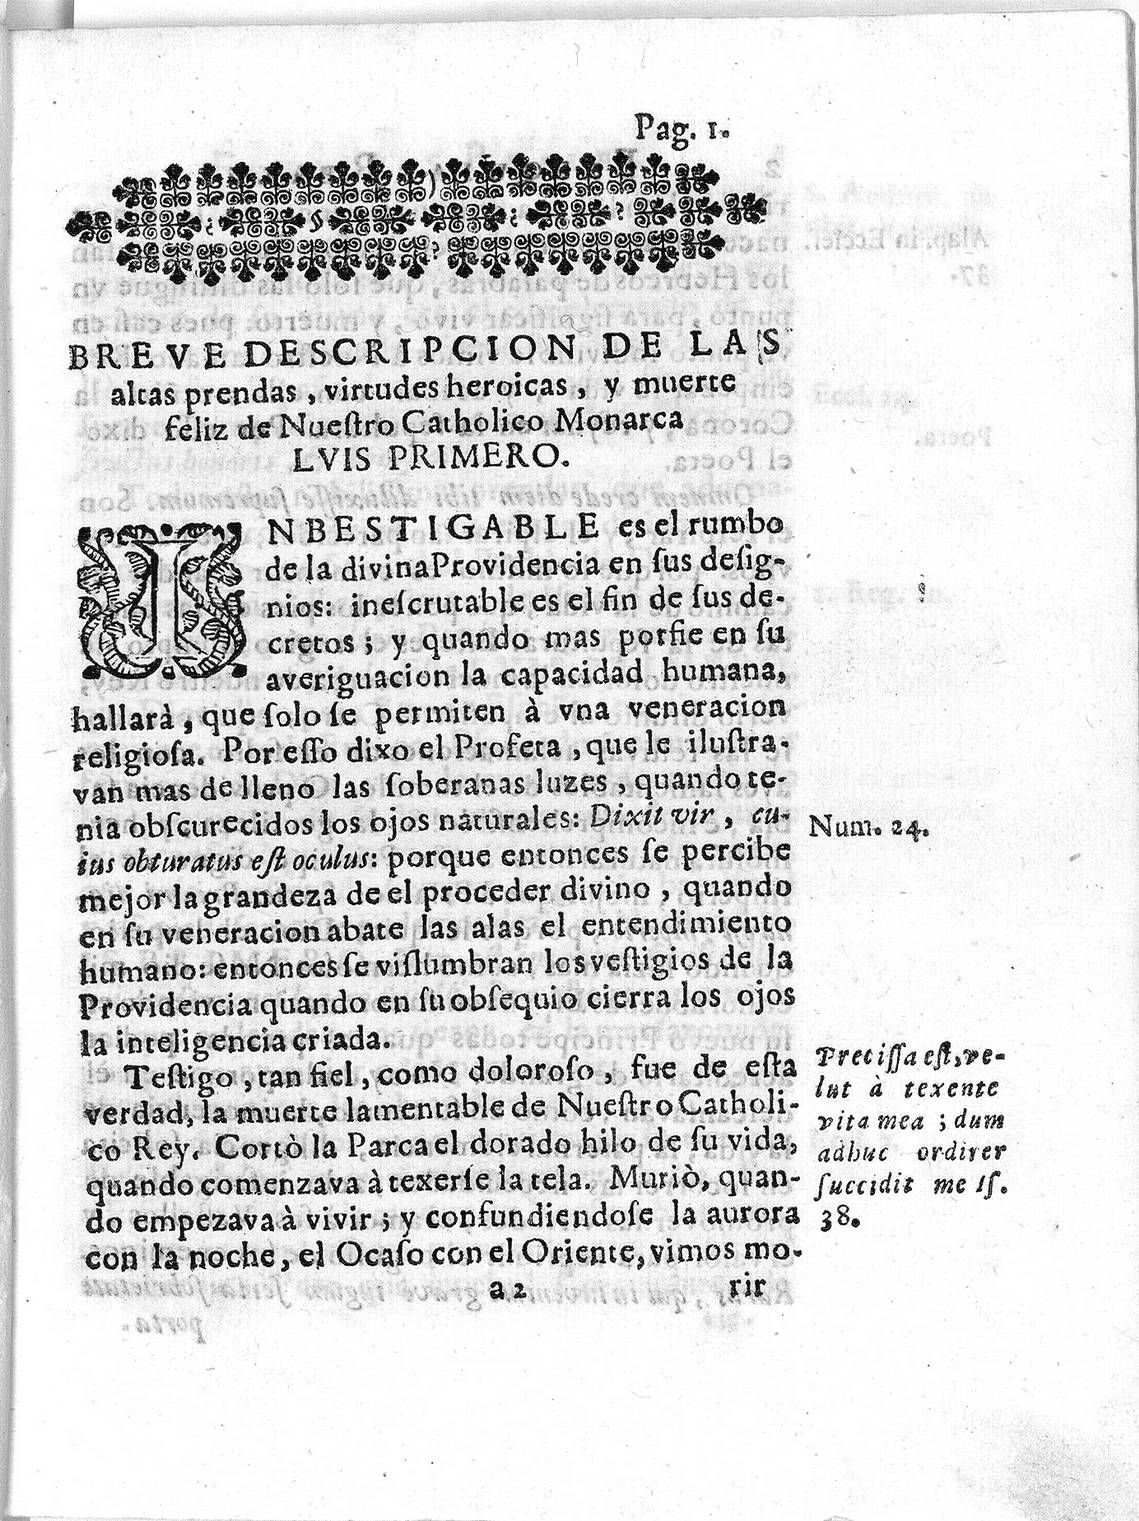 Pag. 1.
BREVE DESCRIPCION DE LAS
altas prendas, virtudes heroicas, y muerte
feliz de Nueſtro Catholico Monarca
LVIS PRIMERO.
INBESTIGABLE es el rumbo
de la divina Providencia en ſus deſig-
nios: ineſcrutable es el fin de ſus de-
cretos; y quando mas porfie en ſu
averiguacion la capacidad humana,
hallarà, que ſolo ſe permiten à vna veneracion
religioſa. Por eſſo dixo el Profeta, que le iluſtra-
van mas de lleno las ſoberanas luzes, quando te-
nia obſcurecidos los ojos naturales: Dixit vir, cu-
ius obturatus eſt oculus: porque entonces ſe percibe
mejor la grandeza de el proceder divino, quando
en ſu veneracion abate las alas el entendimiento
humano: entonces ſe viſlumbran los veſtigios de la
Providencia quando en ſu obſequio cierra los ojos
la inteligencia criada.
Teſtigo, tan fiel, como doloroſo, fue de eſta
verdad, la muerte lamentable de Nueſtro Catholi-
co Rey. Cortò la Parca el dorado hilo de ſu vida,
quando comenzava à texerſe la tela. Muriò, quan-
do empezava à vivir; y confundiendoſe la aurora
con la noche, el Ocaſo con el Oriente, vimos mo-
a2 rir
Num. 24.
Preciſſa eſt, ve-
lut à texente
vita mea; dum
adhuc ordirer
ſuccidit me Iſ.
38.